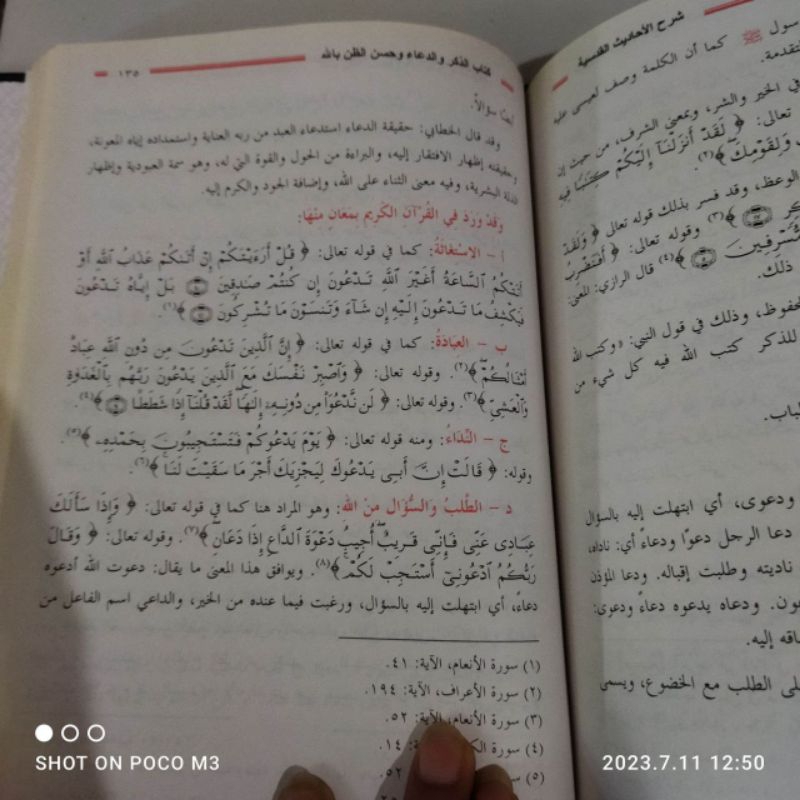 شرح الأحاديث القدسية
سول ﷺ كما أن الكلمة وصف لعيسى عليه
تقدمة.
في الخير والشر، وبمعنى الشرف، من حيث إن
تعالى: ﴿ لَقَدْ أَنزَلْنَآ إِلَيْكُمْ كِتَٰبًا فِيهِ
وَلِقَوْمِكَ ﴾(٢).
الوعظ، وقد فسر بذلك قوله تعالى ﴿ وَلَقَدْ
﴾(٣) وقوله تعالى: ﴿ أَفَنَضْرِبُ
﴾(٤) قال الرازي: المعنى
ذلك.
حفوظ، وذلك في قول النبي: «وكتب الله
للذكر كتب الله فيه كل شيء من
ودعوى، أي ابتهلت إليه بالسؤال
دعا الرجل دعوًا ودعاءً أي: ناداه،
ناديته وطلبت إقباله. ودعا المؤذن
عون. ودعاه يدعوه دعاءً ودعوى:
ساقه إليه.
لى الطلب مع الخضوع، ويسمى
كتاب الذكر والدعاء وحسن الظن بالله
١٣٥
أيضًا سؤالاً.
وقد قال الخطابي: حقيقة الدعاء استدعاء العبد من ربه العناية واستمداده إياه المعونة،
وحقيقته إظهار الافتقار إليه، والبراءة من الحول والقوة التي له، وهو سمة العبودية وإظهار
الذلة البشرية، وفيه معنى الثناء على الله، وإضافة الجود والكرم إليه.
وَقَدْ وَرَدَ فِي القُرْآنِ الكَرِيمِ بِمَعَانٍ مِنْهَا:
أ - الاسْتِغَاثَةُ: كما في قوله تعالى: ﴿ قُلْ أَرَءَيْتَكُمْ إِنْ أَتَىٰكُمْ عَذَابُ ٱللَّهِ أَوْ
أَتَتْكُمُ ٱلسَّاعَةُ أَغَيْرَ ٱللَّهِ تَدْعُونَ إِن كُنتُمْ صَٰدِقِينَ ۝ بَلْ إِيَّاهُ تَدْعُونَ
فَيَكْشِفُ مَا تَدْعُونَ إِلَيْهِ إِن شَآءَ وَتَنسَوْنَ مَا تُشْرِكُونَ ۝ ﴾(١).
ب - العِبَادَةُ: كما في قوله تعالى: ﴿ إِنَّ ٱلَّذِينَ تَدْعُونَ مِن دُونِ ٱللَّهِ عِبَادٌ
أَمْثَالُكُمْ ﴾(٢). وقوله تعالى: ﴿ وَٱصْبِرْ نَفْسَكَ مَعَ ٱلَّذِينَ يَدْعُونَ رَبَّهُم بِٱلْغَدَوٰةِ
وَٱلْعَشِيِّ ﴾(٣). وقوله تعالى: ﴿ لَن نَّدْعُوَا۟ مِن دُونِهِۦٓ إِلَٰهًا لَّقَدْ قُلْنَآ إِذًا شَطَطًا ۝ ﴾(٤).
ج - النِّدَاءُ: ومنه قوله تعالى: ﴿ يَوْمَ يَدْعُوكُمْ فَتَسْتَجِيبُونَ بِحَمْدِهِۦ ﴾(٥).
وقوله: ﴿ قَالَتْ إِنَّ أَبِى يَدْعُوكَ لِيَجْزِيَكَ أَجْرَ مَا سَقَيْتَ لَنَا ﴾(٦).
د - الطَّلَبُ وَالسُّؤَالُ مِنَ اللهِ: وهو المراد هنا كما في قوله تعالى: ﴿ وَإِذَا سَأَلَكَ
عِبَادِى عَنِّى فَإِنِّى قَرِيبٌ أُجِيبُ دَعْوَةَ ٱلدَّاعِ إِذَا دَعَانِ ﴾(٧). وقوله تعالى: ﴿ وَقَالَ
رَبُّكُمُ ٱدْعُونِىٓ أَسْتَجِبْ لَكُمْ ﴾(٨). ويوافق هذا المعنى ما يقال: دعوت الله أدعوه
دعاءً، أي ابتهلت إليه بالسؤال، ورغبت فيما عنده من الخير، والداعي اسم الفاعل من
(١) سورة الأنعام، الآية: ٤١.
(٢) سورة الأعراف، الآية: ١٩٤.
(٣) سورة الأنعام، الآية: ٥٢.
(٤) سورة ١٤.
(٥) ٥٢.
SHOT ON POCO M3
2023.7.11 12:50